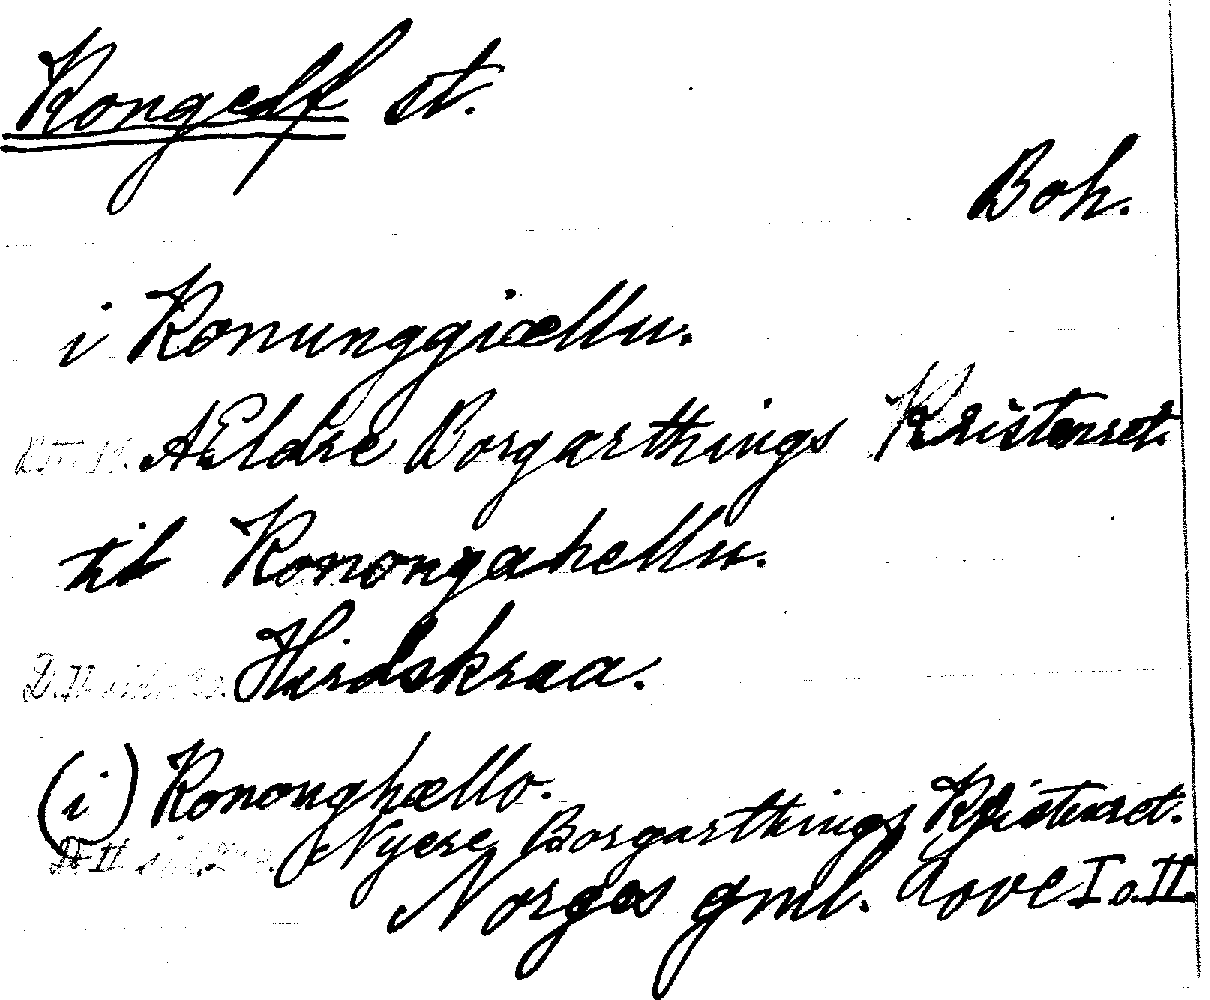 Kongelf st.
Boh.
i Konunggiællu.
AEldre Borgarthings Kristenret.
til Konongahellu.
Hirdskraa.
(i) Konoughællo.
Nyere Borgarthings Kristenret.
Norges gml. Love I o. II.